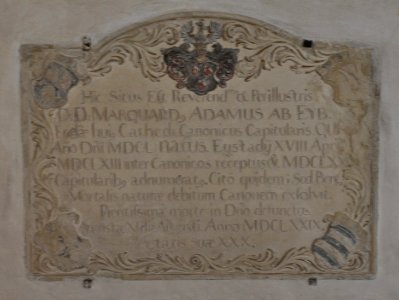 Hic Situs Est Reverend⁹ & Perillustris
D.D MARQUARD⁹ ADAMUS AB EYB.
huius Cathedr: Canonicus Capitularis, QUI
Año Dñi MDCL natus Eystadij XVIII Apr
MDCLXIII inter Canonicos receptus & MDCLXX
Capitularib⁹ adnumerat⁹. Cito quidem: Sed
Mortalis naturæ debitum Canonem exsolvit
Pientissima morte in Dño defunctus
Augusti Anno MDCLXXIX
Ætatis Suæ XXX.